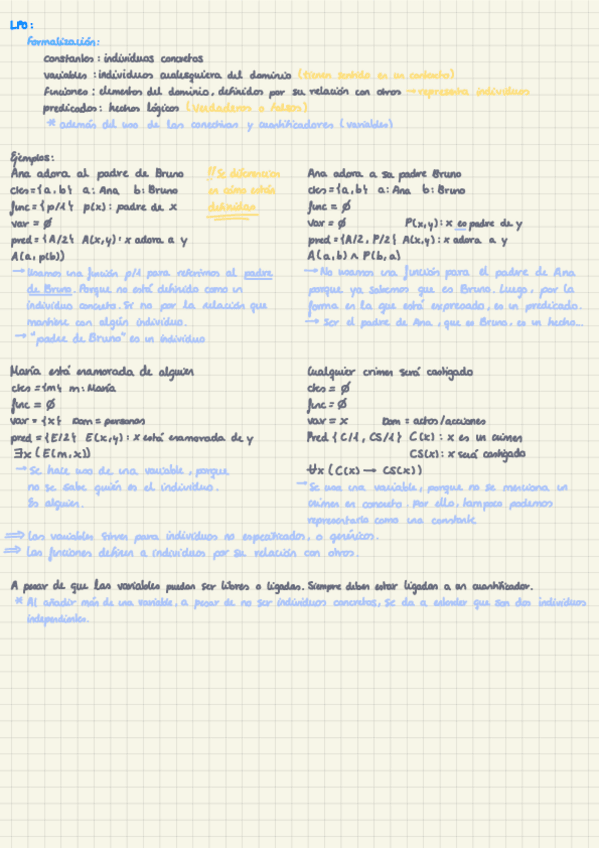 LPO:
Formalización:
constantes: individuos concretos
variables: individuos cualesquiera del dominio (tienen sentido en un contexto)
Funciones: elementos del dominio, definidos por su relación con otros → representa individuos
predicados: hechos lógicos (Verdaderos o falsos)
* además del uso de las conectivas y cuantificadores (variables)
Ejemplos:
Ana adora al padre de Bruno
ctes = {a, b} a: Ana b: Bruno
func = { p/1 } p(x): padre de x
var = ∅
pred = {A/2} A(x,y): x adora a y
A(a, p(b))
→ Usamos una función p/1 para referirnos al padre
de Bruno. Porque no está definido como un
individuo concreto. Si no por la relación que
mantiene con algún individuo.
→ "padre de Bruno" es un individuo
!! Se diferencian
en cómo están
definidas
Ana adora a su padre Bruno
ctes = {a, b} a: Ana b: Bruno
func = ∅
var = ∅ P(x,y): x es padre de y
pred = {A/2, P/2} A(x,y): x adora a y
A(a,b) ∧ P(b,a)
→ No usamos una función para el padre de Ana
porque ya sabemos que es Bruno. Luego, por la
forma en la que está expresado, es un predicado.
→ Ser el padre de Ana, que es Bruno, es un hecho...
María está enamorada de alguien
ctes = {m} m: María
func = ∅
var = {x} Dom = personas
pred = {E/2} E(x,y): x está enamorada de y
∃x (E(m,x))
→ Se hace uso de una variable, porque
no se sabe quién es el individuo.
Es alguien.
Cualquier crimen será castigado
ctes = ∅
func = ∅
var = x Dom = actos/acciones
Pred {C/1, CS/1} C(x): x es un crimen
CS(x): x será castigado
∀x (C(x) → CS(x))
→ Se usa una variable, porque no se menciona un
crimen en concreto. Por ello, tampoco podemos
representarlo como una constante.
⇒ Las variables sirven para individuos no especificados, o genéricos.
⇒ Las funciones definen a individuos por su relación con otros.
A pesar de que las variables puedan ser libres o ligadas. Siempre deben estar ligadas a un cuantificador.
* Al añadir más de una variable, a pesar de no ser individuos concretos, se da a entender que son dos individuos
independientes.